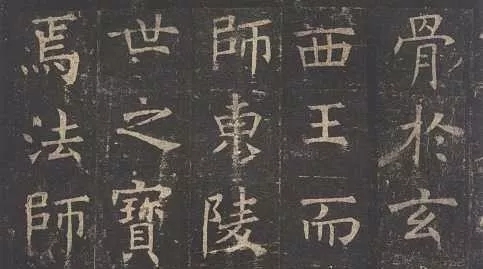 骨於玄
西王而
師東陵
世之寶
焉法師